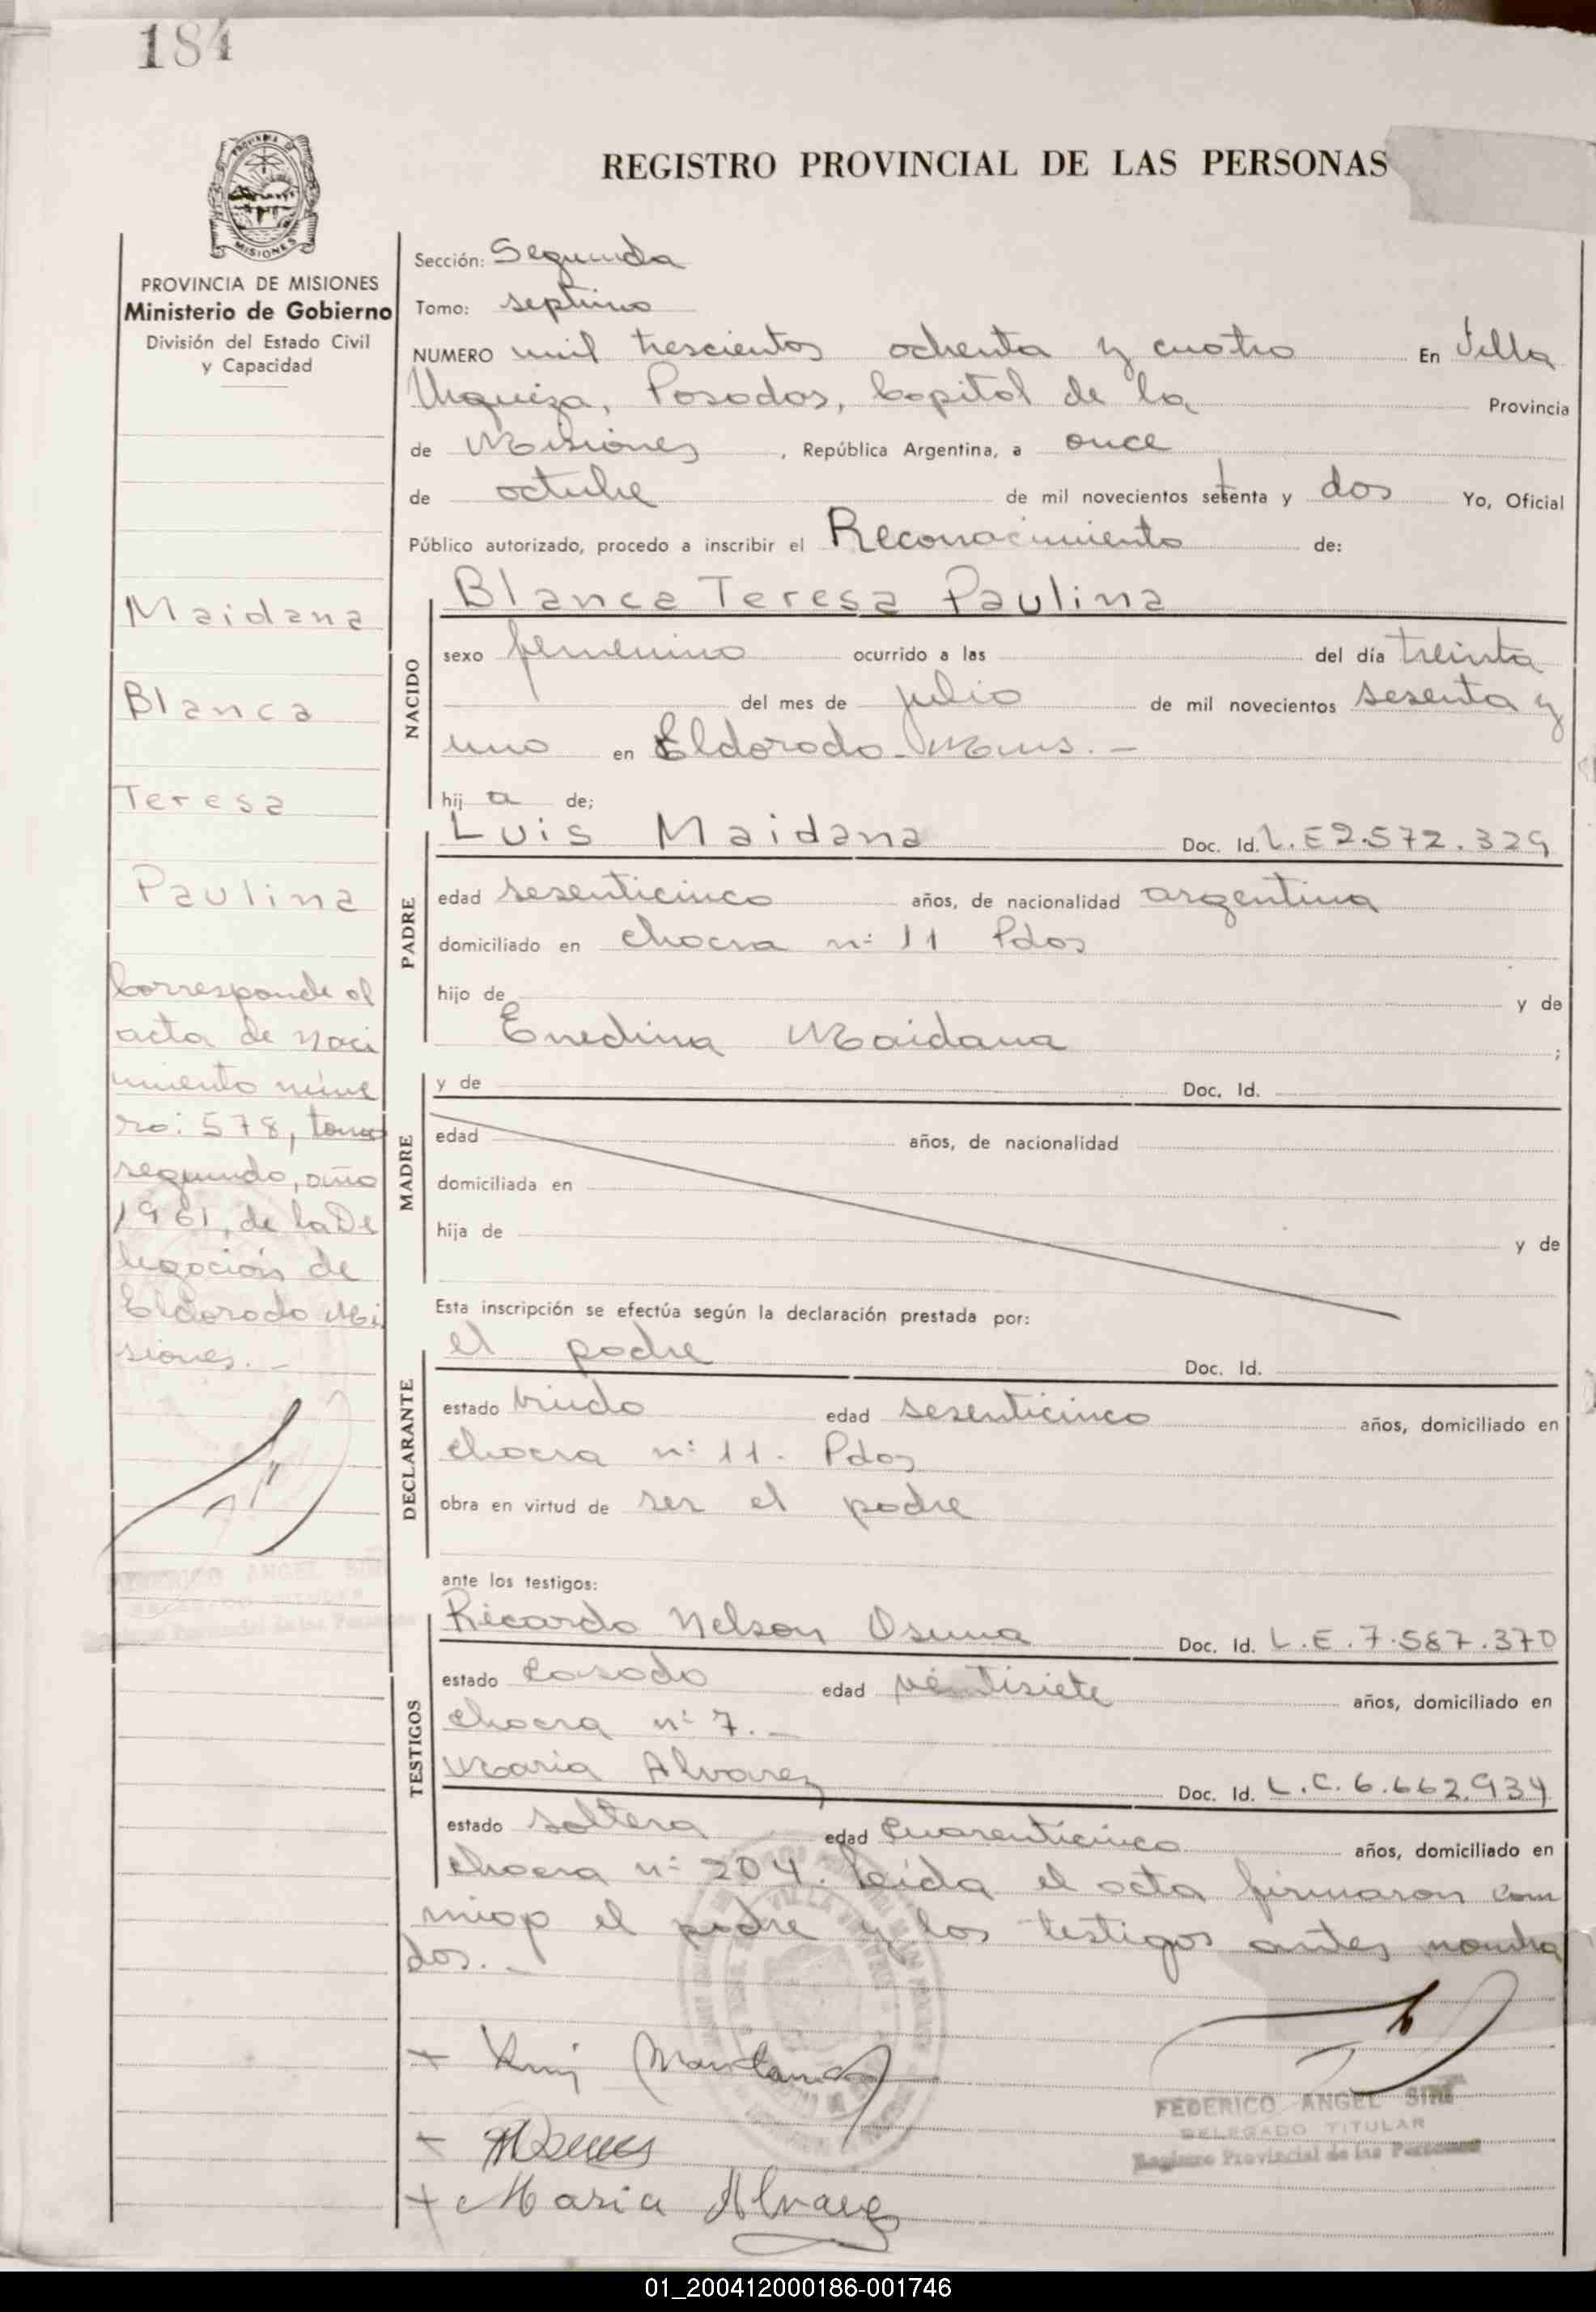 184
REGISTRO PROVINCIAL DE LAS PERSONAS
PROVINCIA DE MISIONES
Ministerio de Gobierno
División del Estado Civil
y Capacidad
Maidana
Blanca
Teresa
Paulina
Corresponde al
acta de naci
miento núme
ro: 578, tomo
segundo, año
1961, de la De
legación de
Eldorado Mi
siones.-
FEDERICO ANGEL
Sección: Segunda
Tomo: septimo
NUMERO mil trescientos ochenta y cuatro En Villa
Urquiza, Posadas, Capital de la Provincia
de Misiones, República Argentina, a once
de octubre de mil novecientos setenta y dos Yo, Oficial
Público autorizado, procedo a inscribir el Reconocimiento de:
NACIDO
Blanca Teresa Paulina
sexo femenino ocurrido a las del día treinta
del mes de julio de mil novecientos sesenta y
uno en Eldorado-
hij a de;
PADRE
Luis Maidana Doc. Id. L.E 2.572.329
edad sesenticinco años, de nacionalidad argentina
domiciliado en chacra n: 11 Pdas
hijo de y de
Enedina Maidana ;
MADRE
y de Doc. Id.
edad años, de nacionalidad
domiciliada en
hija de y de
Esta inscripción se efectúa según la declaración prestada por:
DECLARANTE
el padre Doc. Id.
estado viudo edad sesenticinco años, domiciliado en
chacra n: 11. Pdas
obra en virtud de ser el padre
ante los testigos:
TESTIGOS
Ricardo Nelson Osuna Doc. Id. L.E. 7.587.370
estado casado edad veintisiete años, domiciliado en
chacra n: 7.-
Maria Alvarez Doc. Id. L.C. 6.662.934
estado soltera edad cuarenticinco años, domiciliado en
chacra n: 204. Leída el acta firmaron con
migo el padre y los testigos antes nombra
dos.-
+ Luis Maidana
+
+ Maria Alvarez
FEDERICO ANGEL
DELEGADO TITULAR
Registro Provincial de las Personas
01_200412000186-001746